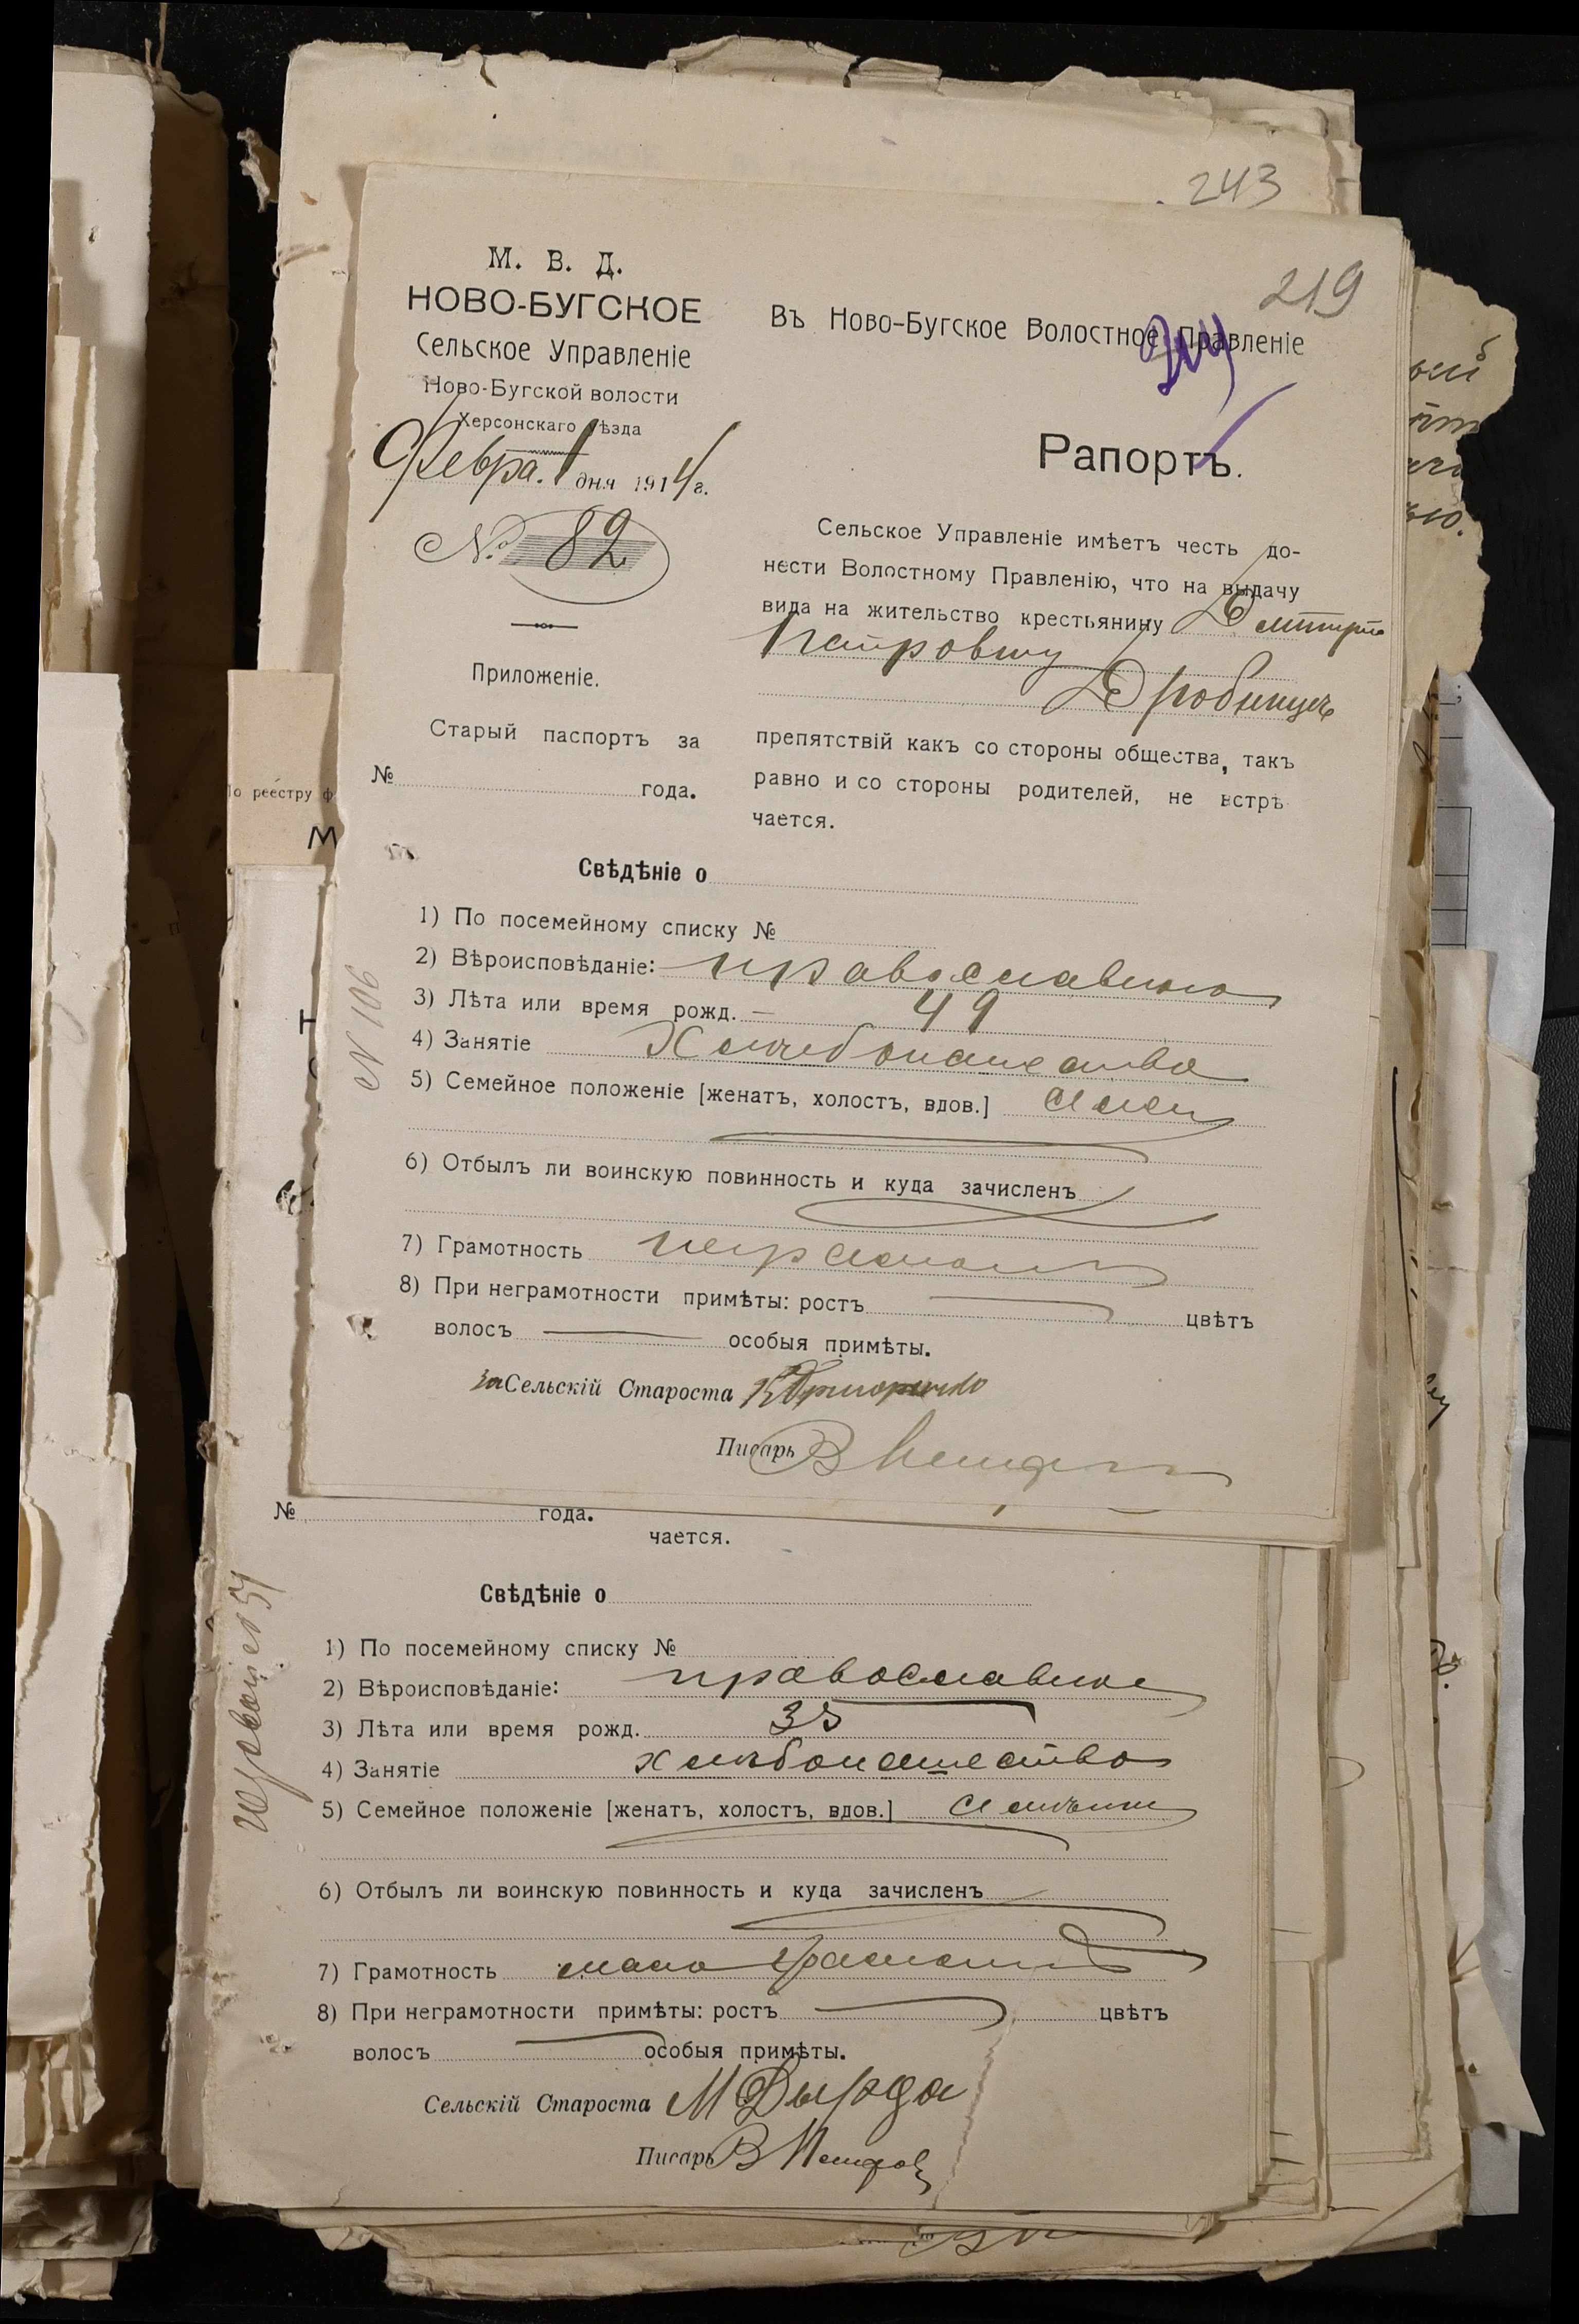 243
219
М. В. Д.
НОВО-БУГСКОЕ
Сельское Управленіе
Ново-Бугской волости
Херсонскаго уѣзда
Февра. 1 дня 1914 г.
№ 82
Приложеніе.
Старый паспортъ за
№ года.
Въ Ново-Бугское Волостное Правленіе
Рапортъ.
Сельское Управленіе имѣетъ честь до-
нести Волостному Правленію, что на выдачу
вида на жительство крестьянину Дмитрію
Петровичу
препятствій какъ со стороны общества, такъ
равно и со стороны родителей, не встрѣ
чается.
Свѣдѣніе о
1) По посемейному списку №
2) Вѣроисповѣданіе: православного
3) Лѣта или время рожд. — 49
4) Занятіе Хлѣбопашество
5) Семейное положеніе [женатъ, холостъ, вдов.]
6) Отбылъ ли воинскую повинность и куда зачисленъ
7) Грамотность
8) При неграмотности примѣты: ростъ цвѣтъ
волосъ особыя примѣты.
за Сельскій Староста
Писарь В Петров
N 106
о реестру ф
№ года.
чается.
Свѣдѣніе о
1) По посемейному списку №
2) Вѣроисповѣданіе: православное
3) Лѣта или время рожд. 35
4) Занятіе хлѣбопашество
5) Семейное положеніе [женатъ, холостъ, вдов.]
6) Отбылъ ли воинскую повинность и куда зачисленъ
7) Грамотность мало
8) При неграмотности примѣты: ростъ цвѣтъ
волосъ особыя примѣты.
Сельскій Староста М Дырда
Писарь В Петров